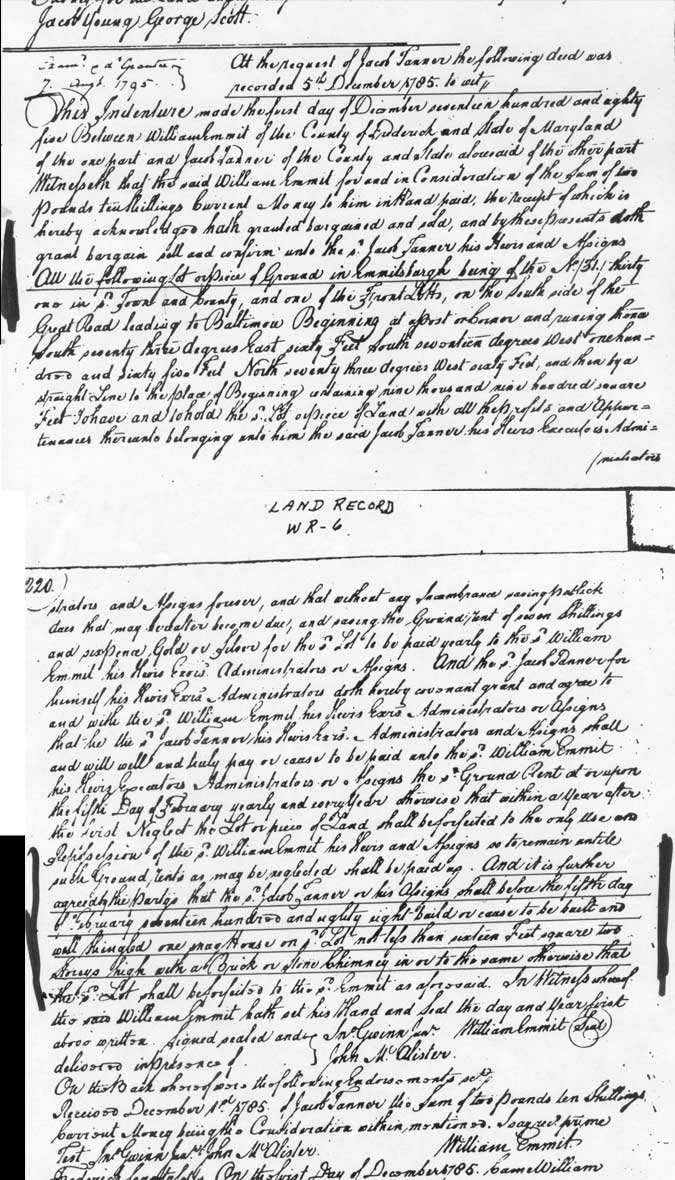 Jacob Young George Scott.
Exam.d & d.d Grantee
7 Augt. 1795.
At the request of Jacob Tanner the following deed was
recorded 5th December 1785. to wit,
This Indenture made the first day of December seventeen hundred and eighty
five Between William Emmit of the County of Frederick and State of Maryland
of the one part and Jacob Tanner of the County and State aforesaid of the other part
Witnesseth that the said William Emmit for and in Consideration of the Sum of two
Pounds ten Shillings Current Money to him in Hand paid, the receipt of which is
hereby acknowledged hath granted bargained and sold, and by these presents doth
grant bargain sell and confirm unto the sd. Jacob Tanner his Heirs and Assigns
All the following Lot or piece of Ground in Emmitsburgh being of the No. (31.) thirty
one in sd. Town and County, and one of the Front Lotts, on the South side of the
Great Road leading to Baltimore Beginning at a Post or Corner and runing thence
South seventy three degrees East sixty Feet South seventeen degrees West one hun=
dred and sixty five Feet North seventy three degrees West sixty Feet, and then by a
straight Line to the place of Beginning containing nine thousand nine hundred square
Feet To have and to hold the sd. Lot or piece of Land with all the Profits and Appur=
tenances thereunto belonging unto him the said Jacob Tanner his Heirs Executors Admi=
/nistrators
LAND RECORD
WR-6
220.)
strators and Assigns forever, and that without any Incumbrance saving publick
dues that may hereafter become due, and saving the Ground Rent of seven Shillings
and sixpence Gold or Silver for the sd. Lot to be paid yearly to the sd. William
Emmit his Heirs Exors. Administrators or Assigns. And the sd. Jacob Tanner for
himself his Heirs Exrs. Administrators doth hereby covenant grant and agree to
and with the sd. William Emmit his Heirs Exrs. Administrators or Assigns
that he the sd. Jacob Tanner his Heirs Exrs. Administrators and Assigns shall
and will well and truly pay or cause to be paid unto the sd. William Emmit
his Heirs Executors Administrators or Assigns the sd. Ground Rent at or upon
the fifth Day of February yearly and every Year otherwise that within a Year after
the first Neglect the Lot or piece of Land shall be forfeited to the only Use and
Repossession of the sd. William Emmit his Heirs and Assigns so to remain untile
such Ground Rents as may be neglected shall be paid up. And it is further
agreed by the Partys that the sd. Jacob Tanner or his Assigns shall before the fifth day
of February seventeen hundred and eighty eight Build or cause to be built and
well shingled one House on sd. Lot not less than sixteen Feet square two
Storeys high with a Brick or Stone Chimney in or to the same otherwise that
the sd. Lot shall be forfeited to the sd. Emmit as aforesaid. In Witness whereof
the said William Emmit hath set his Hand and Seal the day and Year first
above written. signed sealed and } Jno. Gwinn junr. William Emmit (Seal)
delivered in presence of } John McAlister.
On the Back whereof were the following Endorsements vizt.
Received December 1st. 1785. of Jacob Tanner the Sum of two Pounds ten Shillings
Current Money being the Consideration within mentioned. I say recd. pr. me
Test Jno. Gwinn junr. John McAlister. William Emmit
Frederick On the first Day of December 1785. Came William